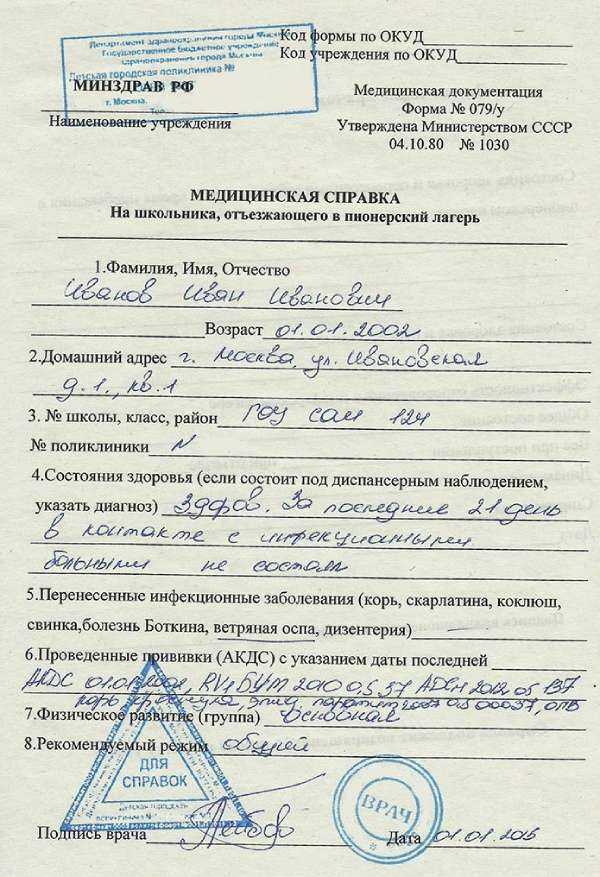 Департамент здравоохранения города Москвы
Государственное бюджетное учреждение
здравоохранения города Москвы
Детская городская поликлиника №
МИНЗДРАВ РФ
г. Москва.
Наименование учреждения
Код формы по ОКУД
Код учреждения по ОКУД
Медицинская документация
Форма № 079/у
Утверждена Министерством СССР
04.10.80 № 1030
МЕДИЦИНСКАЯ СПРАВКА
На школьника, отъезжающего в пионерский лагерь
1.Фамилия, Имя, Отчество
Иванов Иван Иванович
Возраст 01.01.2002
2.Домашний адрес г. Москва, ул. Ивановская
д.1, кв.1
3. № школы, класс, район ГОУ сош 124
№ поликлиники N
4.Состояния здоровья (если состоит под диспансерным наблюдением,
указать диагноз) Здоров. За последние 21 день
в контакте с инфекционными
больными не состоял
5.Перенесенные инфекционные заболевания (корь, скарлатина, коклюш,
свинка,болезнь Боткина, ветряная оспа, дизентерия) —
6.Проведенные прививки (АКДС) с указанием даты последней
АКДС
7.Физическое развитие (группа) Основная
8.Рекомендуемый режим общий
ДЛЯ
СПРАВОК
ВРАЧ
Подпись врача
Дата 01.01.2015